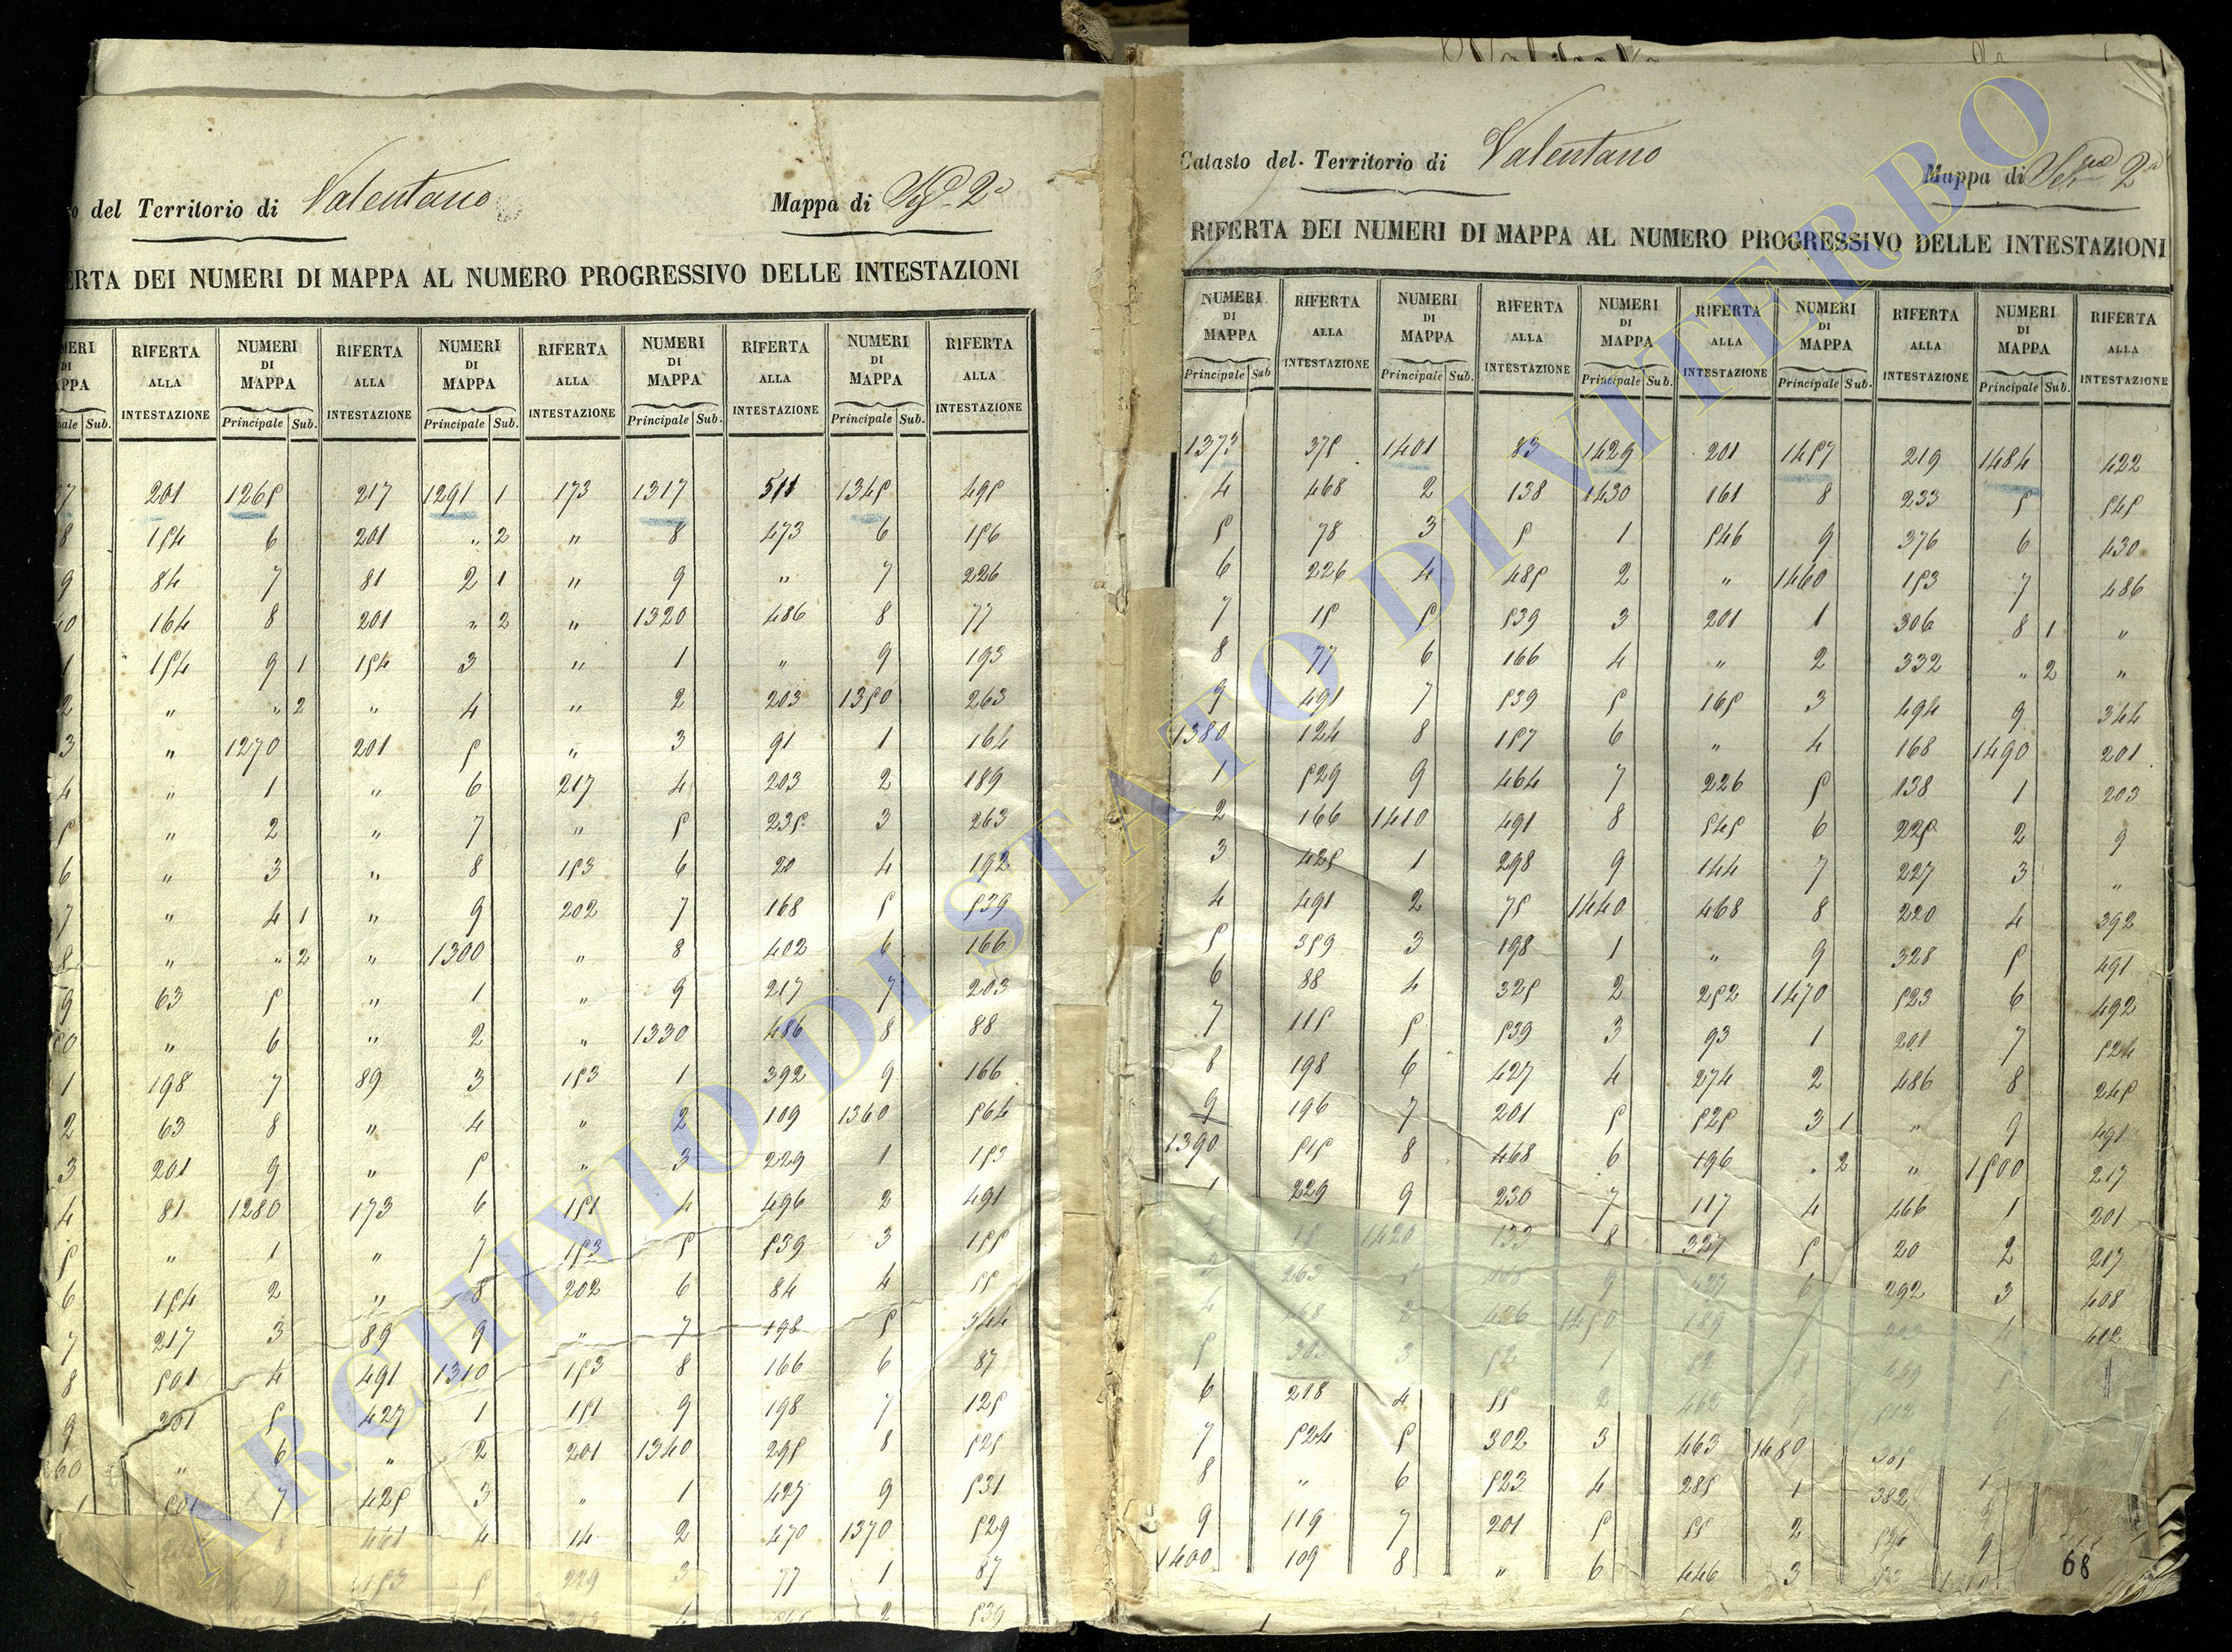 del Territorio di Valentano
Mappa di Sez. 2a
ERTA DEI NUMERI DI MAPPA AL NUMERO PROGRESSIVO DELLE INTESTAZIONI
MERI DI PPA RIFERTA ALLA INTESTAZIONE NUMERI DI MAPPA RIFERTA ALLA INTESTAZIONE NUMERI DI MAPPA RIFERTA ALLA INTESTAZIONE NUMERI DI MAPPA RIFERTA ALLA INTESTAZIONE NUMERI DI MAPPA RIFERTA ALLA INTESTAZIONE
pale Sub. Principale Sub. Principale Sub. Principale Sub. Principale Sub.
7 201 1265 217 1291 1 173 1317 511 1345 495
8 154 6 201 „ 2 „ 8 473 6 156
9 84 7 81 2 1 „ 9 „ 7 226
0 164 8 201 „ 2 „ 1320 486 8 77
1 154 9 1 154 3 „ 1 „ 9 193
2 „ „ 2 „ 4 „ 2 203 1350 263
3 „ 1270 201 5 „ 3 91 1 164
4 „ 1 „ 6 217 4 203 2 189
5 „ 2 „ 7 „ 5 235 3 263
6 „ 3 „ 8 153 6 20 4 192
7 „ 4 1 „ 9 202 7 168 5 539
8 „ „ 2 „ 1300 „ 8 402 6 166
9 63 5 „ 1 „ 9 217 7 203
50 „ 6 „ 2 „ 1330 486 8 88
1 198 7 89 3 153 1 392 9 166
2 63 8 „ 4 „ 2 109 1360 564
3 201 9 „ 5 „ 3 229 1 153
4 81 1280 173 6 151 4 496 2 491
5 „ 1 „ 7 153 5 539 3 155
6 154 2 „ 8 202 6 84 4 55
7 217 3 89 9 „ 7 198 5 344
8 501 4 491 1310 153 8 166 6 87
9 201 5 427 1 151 9 198 7 125
60 „ 6 „ 2 201 1340 295 8 525
1 501 7 425 3 „ 1 427 9 531
8 461 4 14 2 470 1370 529
9 153 5 229 3 77 1 87
4 2 539
Catasto del Territorio di Valentano
Mappa di Sez. 2a
RIFERTA DEI NUMERI DI MAPPA AL NUMERO PROGRESSIVO DELLE INTESTAZIONI
NUMERI DI MAPPA RIFERTA ALLA INTESTAZIONE NUMERI DI MAPPA RIFERTA ALLA INTESTAZIONE NUMERI DI MAPPA RIFERTA ALLA INTESTAZIONE NUMERI DI MAPPA RIFERTA ALLA INTESTAZIONE NUMERI DI MAPPA RIFERTA ALLA INTESTAZIONE
Principale Sub Principale Sub. Principale Sub. Principale Sub. Principale Sub.
1373 375 1401 83 1429 201 1457 219 1484 422
4 468 2 138 1430 161 8 233 5 545
5 78 3 5 1 546 9 376 6 430
6 226 4 485 2 „ 1460 153 7 486
7 15 5 539 3 201 1 306 8 1 „
8 77 6 166 4 „ 2 332 „ 2 „
9 491 7 539 5 165 3 494 9 344
1380 124 8 157 6 „ 4 168 1490 201
1 529 9 464 7 226 5 138 1 203
2 166 1410 491 8 545 6 225 2 9
3 425 1 298 9 144 7 227 3 „
4 491 2 75 1440 468 8 220 4 392
5 359 3 198 1 „ 9 328 5 491
6 88 4 325 2 252 1470 523 6 492
7 115 5 539 3 93 1 201 7 524
8 198 6 427 4 274 2 486 8 245
9 196 7 201 5 525 3 1 „ 9 491
1390 515 8 468 6 196 „ 2 „ 1500 217
1 229 9 230 7 117 4 466 1 201
2 15 1420 133 8 327 5 20 2 217
263 9 427 6 292 3 408
4 168 2 406 1450 189 4 412
5 303 3 52 1 52 8 439
6 218 4 55 2 462 9
7 524 5 302 3 463 1480 305
8 „ 6 523 4 285 1 382
9 119 7 201 5 55 2 9
1400 109 8 „ 6 446 3
68
ARCHIVIO DI STATO DI VITERBO